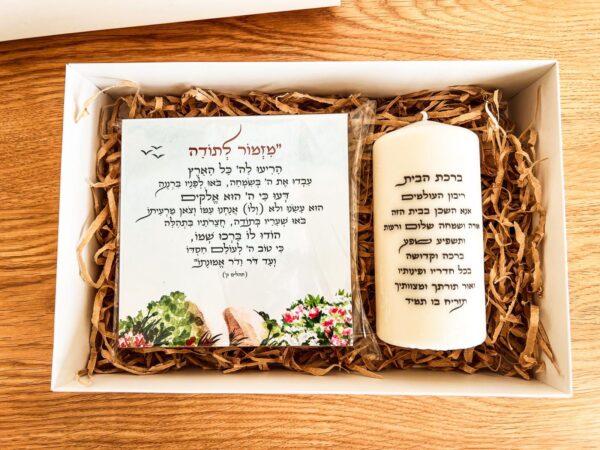 "מִזְמוֹר לְתוֹדָה
הָרִיעוּ לַה' כָּל הָאָרֶץ
עִבְדוּ אֶת ה' בְּשִׂמְחָה, בֹּאוּ לְפָנָיו בִּרְנָנָה
דְּעוּ כִּי ה' הוּא אֱלֹקִים
הוּא עָשָׂנוּ ולא (וְלוֹ) אֲנַחְנוּ עַמּוֹ וְצֹאן מַרְעִיתוֹ
בֹּאוּ שְׁעָרָיו בְּתוֹדָה, חֲצֵרֹתָיו בִּתְהִלָּה
הוֹדוּ לוֹ בָּרְכוּ שְׁמוֹ,
כִּי טוֹב ה' לְעוֹלָם חַסְדּוֹ
וְעַד דֹּר וָדֹר אֱמוּנָתוֹ"
(תהלים ק')
ברכת הבית
ריבון העולמים
אנא השכן בבית הזה
אורה ושמחה שלום ורעות
ותשפיע שפע
ברכה וקדושה
בכל חדריו ופינותיו
ואור תורתך ומצוותיך
תזריח בו תמיד